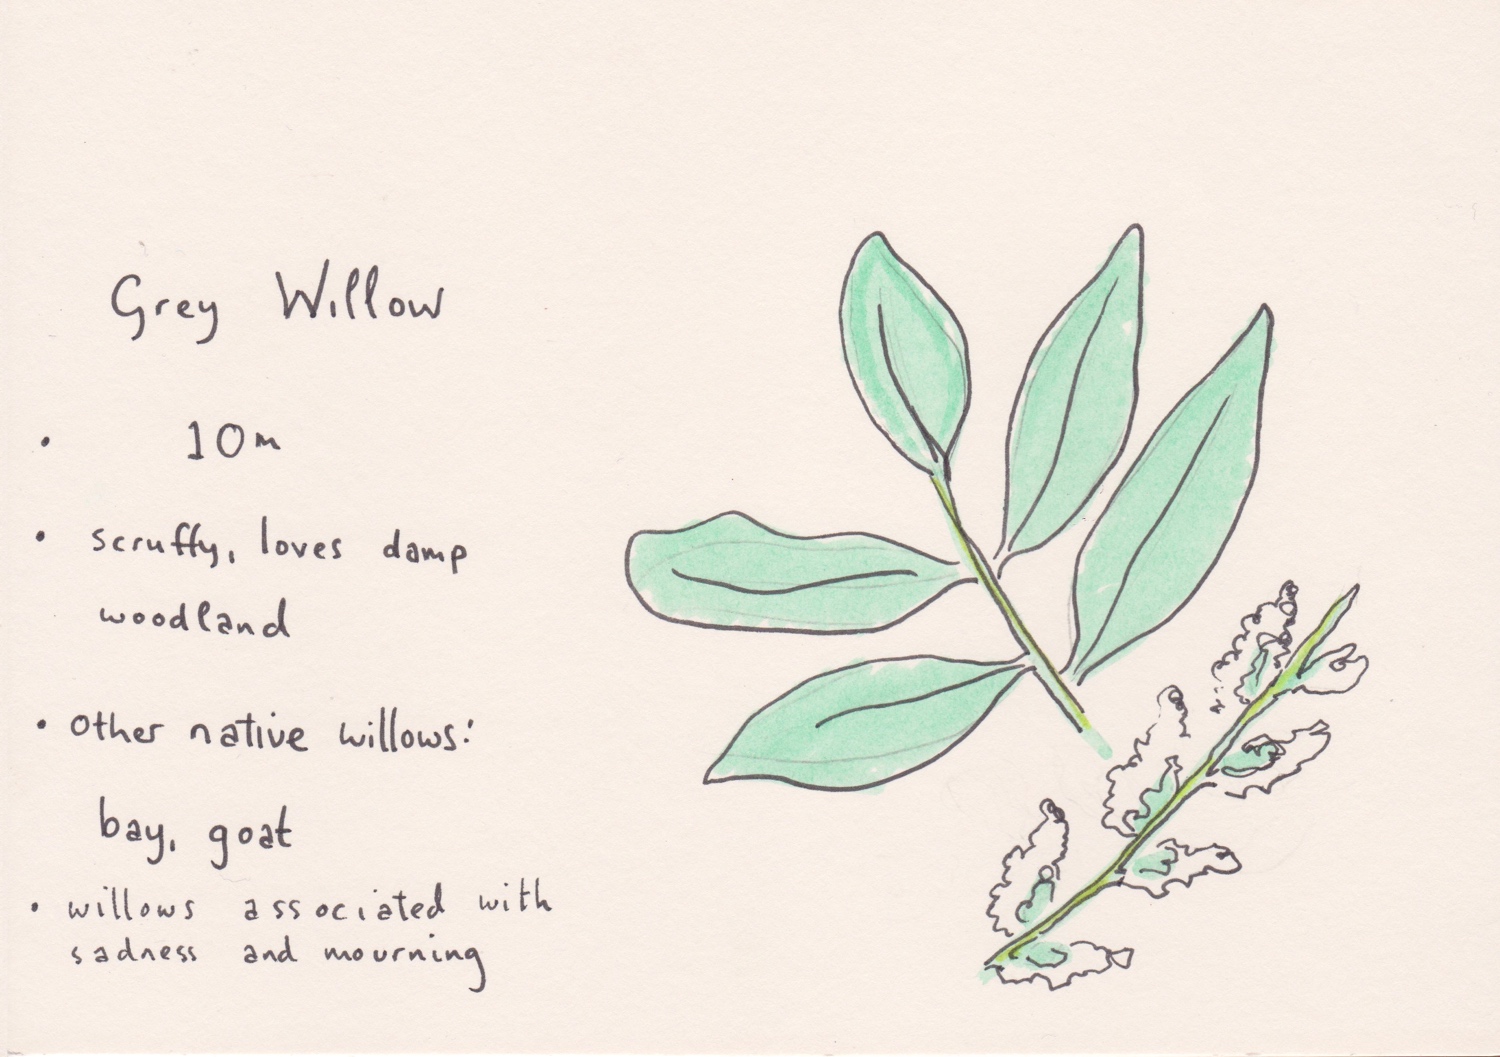 Grey Willow
• 10m
• scruffy, loves damp
woodland
• other native willows:
bay, goat
• willows associated with
sadness and mourning